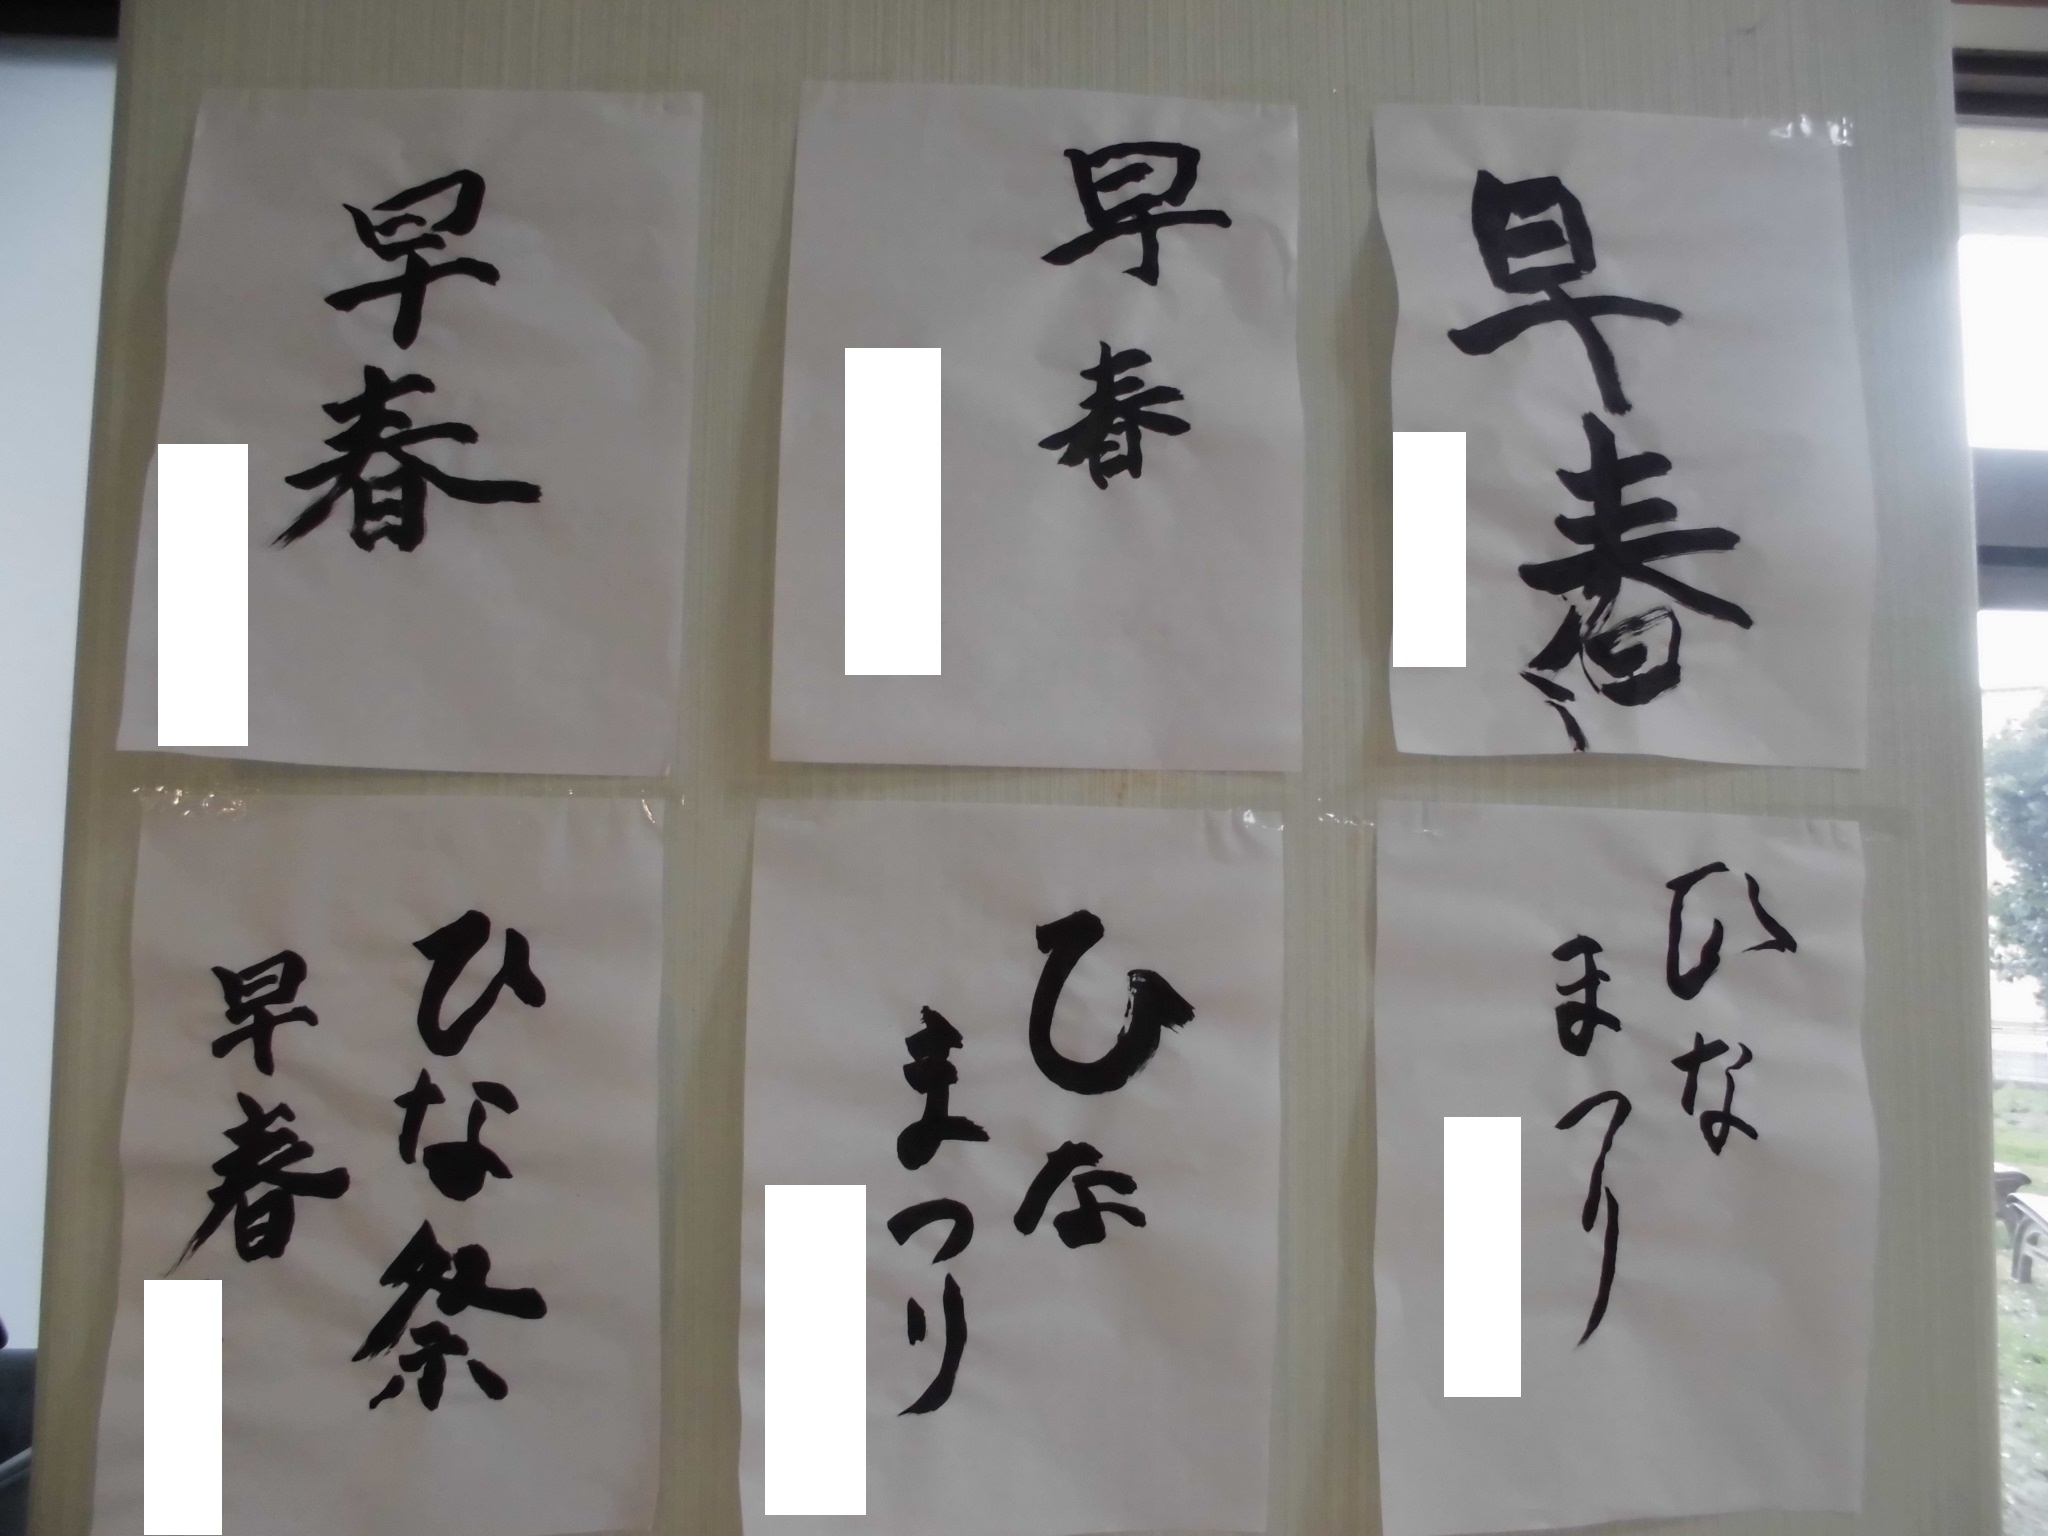 早春
早春
早春
ひな祭
早春
ひな
まつり
ひな
まつり